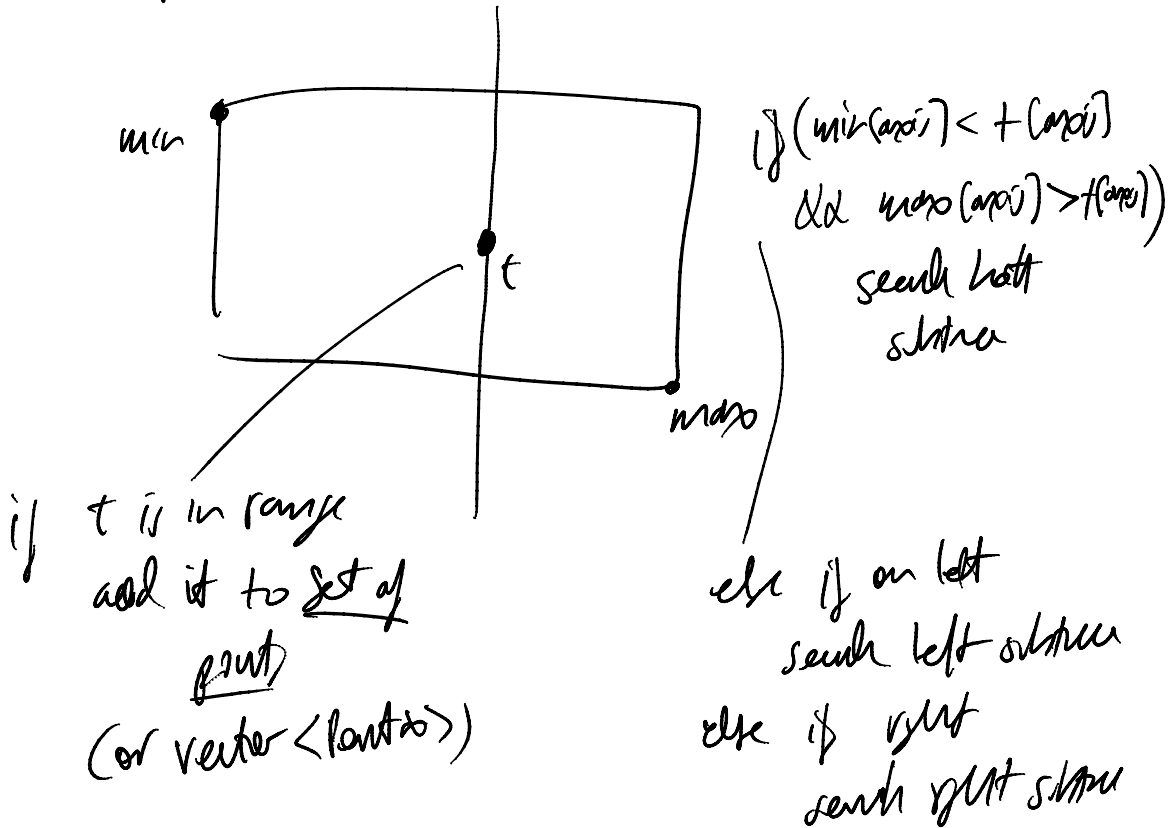 min
t
max
if (min[axis] < t[axis]
&& max[axis] > t[axis])
search both
subtree
if t is in range
add it to set of
points
(or vector <Point>)
else if on left
search left subtree
else if right
search right subtree